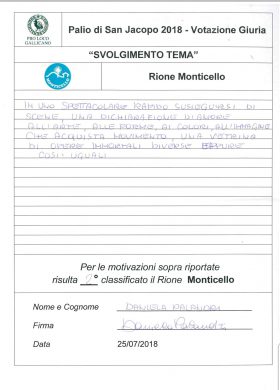 PRO LOCO
GALLICANO
Palio di San Jacopo 2018 - Votazione Giuria
“SVOLGIMENTO TEMA”
MONTICELLO
Rione Monticello
IN UNO SPETTACOLARE RAPIDO SUSSEGUIRSI DI
SCENE, UNA DICHIARAZIONE D'AMORE
ALL'ARTE, ALLE FORME, AI COLORI, ALL'IMMAGINE
CHE ACQUISTA MOVIMENTO, UNA VETRINA
DI OPERE IMMORTALI DIVERSE EPPURE
COSI' UGUALI
Per le motivazioni sopra riportate
risulta 2° classificato il Rione Monticello
Nome e Cognome DANIELA PALANDRI
Firma Daniela Palandri
Data 25/07/2018